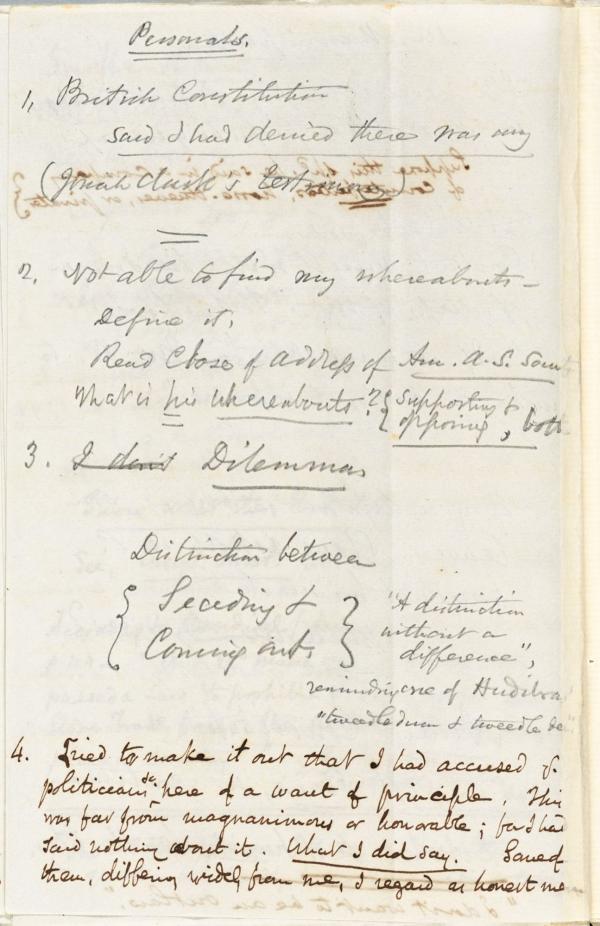 Personals.
1, British Constitution
said I had denied there was any
(Jonah Clark's testimony)
2. Not able to find my whereabouts -
Define it.
Read Close of Address of Am. A. S. Soc
What is his whereabouts? { Supporting &
opposing, both
3. I don't Dilemmas
Distinction between
{ Seceding & } "A distinction
Coming out. without a
difference",
reminding one of Hudibras
"tweedle dum & tweedle de
4. Tried to make it out that I had accused
politicians &c here of a want of principle. This
was far from magnanimous or honorable; for I had
said nothing about it. What I did say. Some of
them, differing widely from me, I regard as honest me